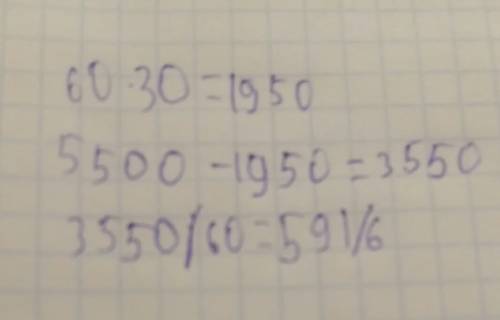 60·30=1950
5500-1950=3550
3550/60=59 1/6